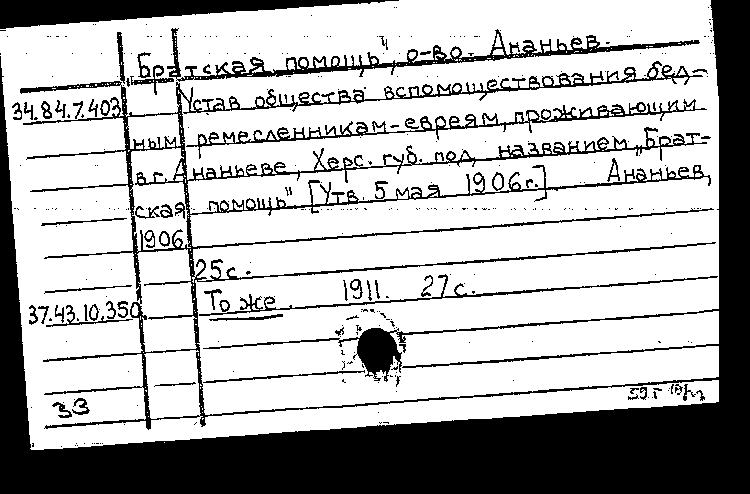 Братская помощь", о-во. Ананьев.
34.84.7.403. Устав общества вспомоществования бед-
ным ремесленникам-евреям, проживающим
в г. Ананьеве, Херс. губ. под названием „Брат-
ская помощь" [Утв. 5 мая 1906г.] Ананьев,
1906.
25с.
37.43.10.350. То же. 1911. 27с.
33
59г